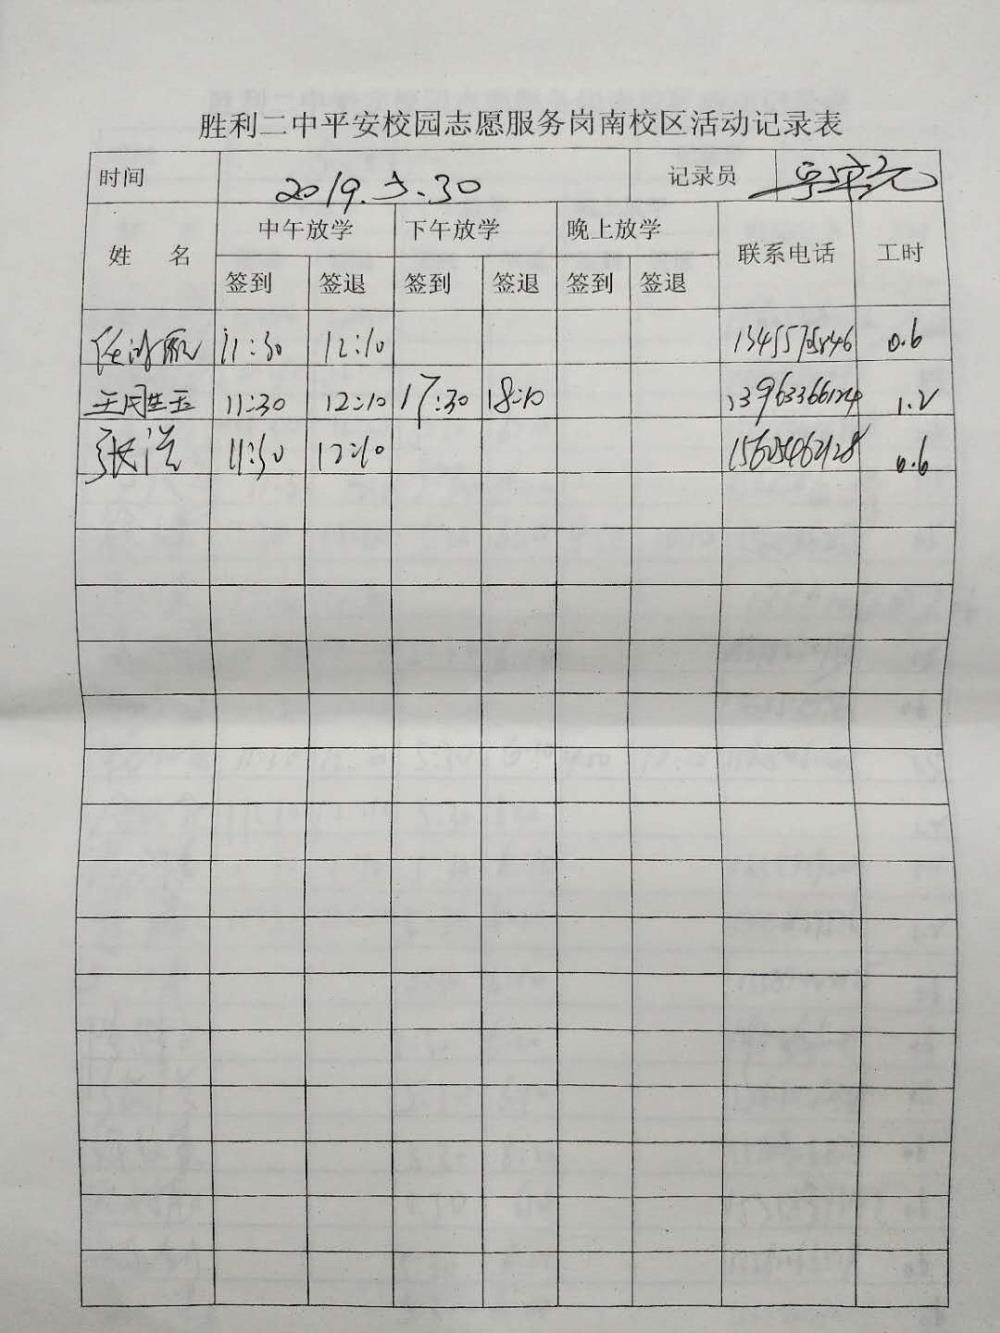 胜利二中平安校园志愿服务岗南校区活动记录表
时间 2019.5.30 记录员
姓 名 中午放学 下午放学 晚上放学 联系电话 工时
签到 签退 签到 签退 签到 签退
任冰 11:30 12:10 0.6
王胜玉 11:30 12:10 17:30 18:10 13963366124 1.2
张浩 11:30 12:10 15605462128 0.6